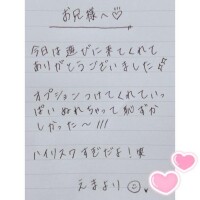 お兄様へ♡
今日は遊びに来てくれて
ありがとうございました
オプションつけてくれてい。
ぱいぬれちゃって恥ずか
しかった〜!!!
ハイリスクすぎだよ!笑
えまより